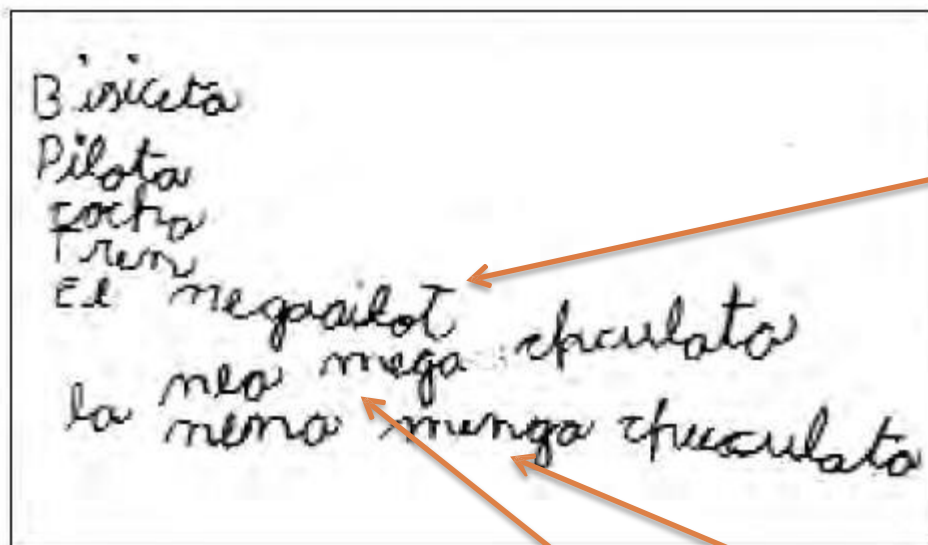 Bisiceta
Pilota
cocha
Tren
El negaailot
nea mega chculata
la nena menga chucculata